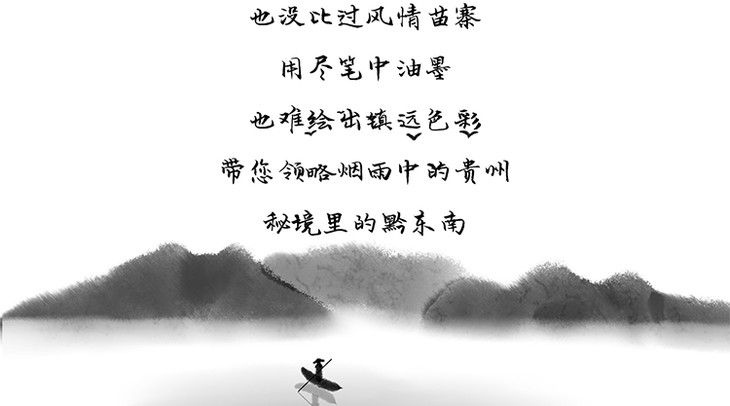 也没比过风情苗寨
用尽笔中油墨
也难绘出镇远色彩
带您领略烟雨中的贵州
秘境里的黔东南